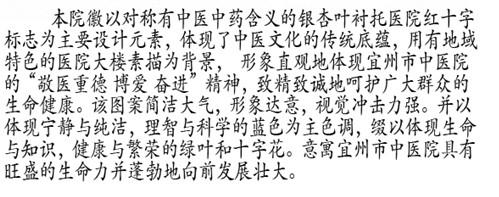 本院徽以对称有中医中药含义的银杏叶衬托医院红十字
标志为主要设计元素，体现了中医文化的传统底蕴，用有地域
特色的医院大楼素描为背景， 形象直观地体现宜州市中医院
的“敬医重德 博爱 奋进”精神，致精致诚地呵护广大群众的
生命健康。该图案简洁大气，形象达意，视觉冲击力强。并以
体现宁静与纯洁，理智与科学的蓝色为主色调，缀以体现生命
与知识，健康与繁荣的绿叶和十字花。意寓宜州市中医院具有
旺盛的生命力并蓬勃地向前发展壮大。